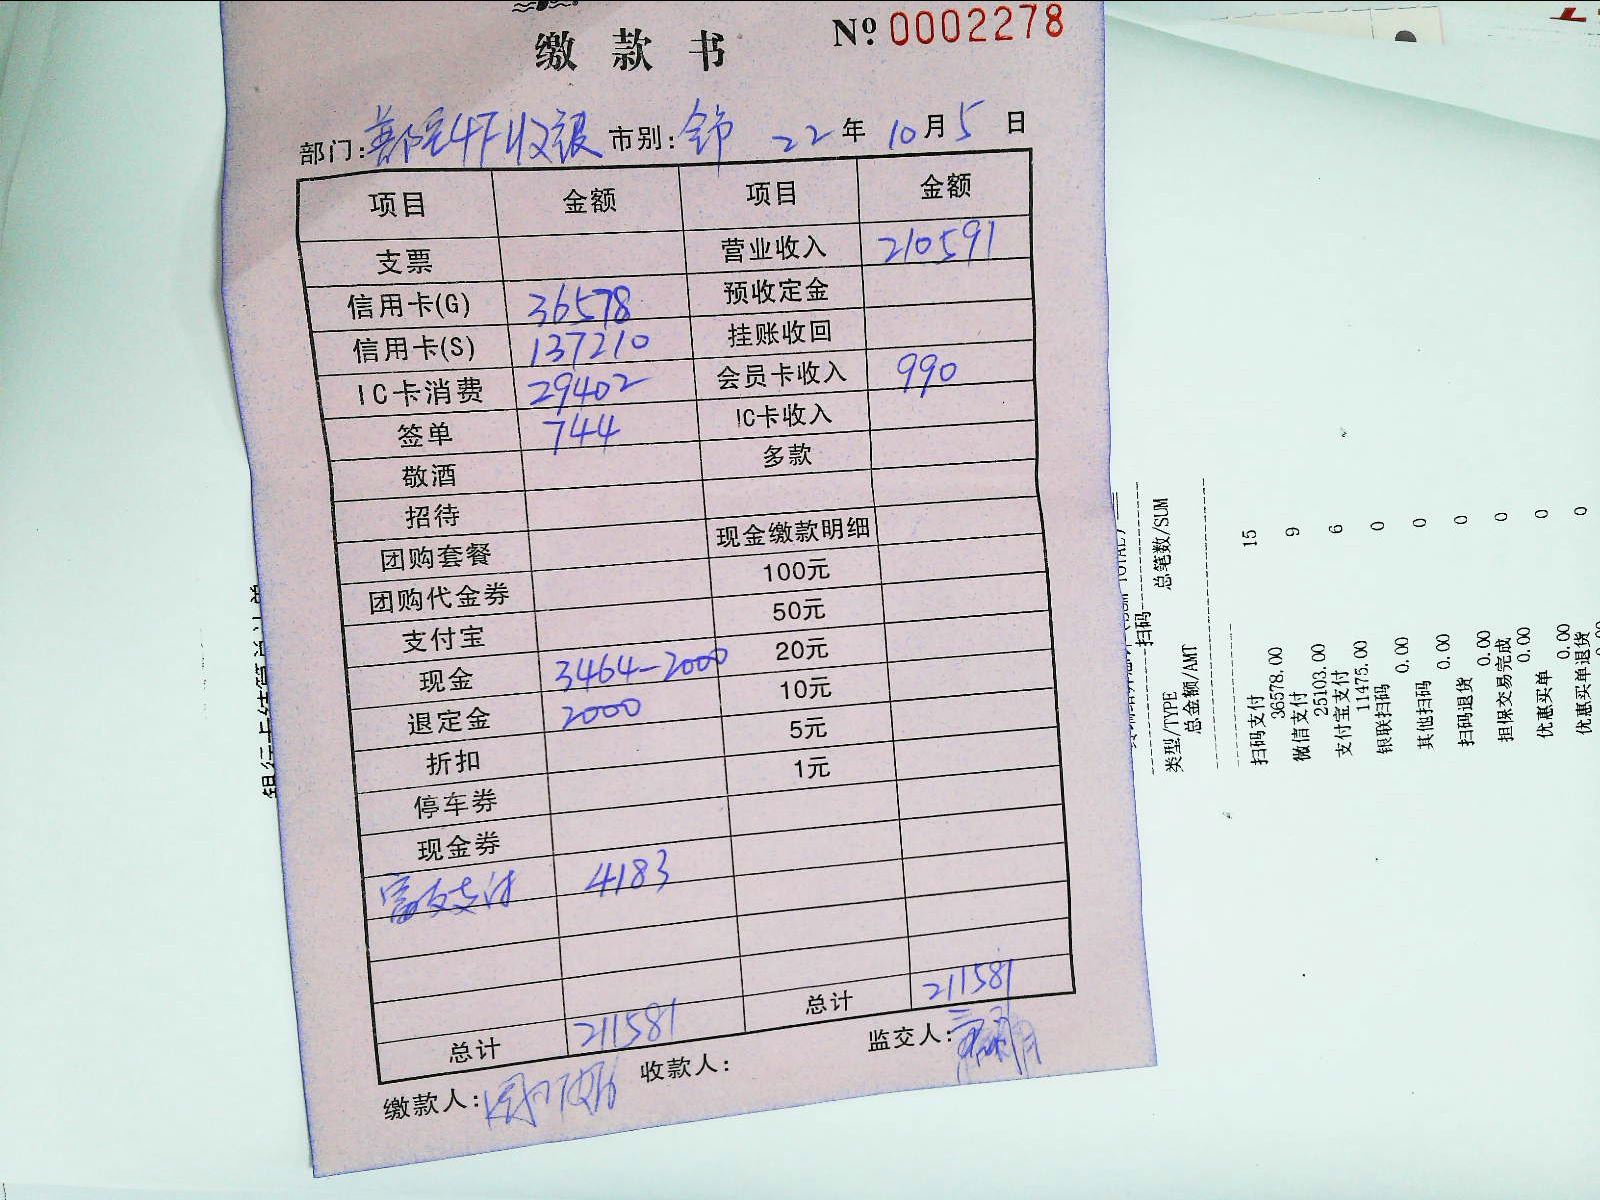 缴款书 Nº 0002278
部门: 4F收银 市别: 全市 22年 10月 5日
项目 金额 项目 金额
支票 营业收入 210591
信用卡(G) 36578 预收定金
信用卡(S) 137210 挂账收回
IC卡消费 29402 会员卡收入 990
签单 744 IC卡收入
敬酒 多款
招待
团购套餐 现金缴款明细
团购代金券 100元
支付宝 50元
现金 3464-2000 20元
退定金 2000 10元
折扣 5元
停车券 1元
现金券
富友支付 4183
总计 211581 总计 211581
缴款人: 收款人: 监交人:
扫码
类型/TYPE 总笔数/SUM
总金额/AMT
扫码支付 15
36578.00
微信支付 9
25103.00
支付宝支付 6
11475.00
银联扫码 0
0.00
其他扫码 0
0.00
扫码退货 0
0.00
担保交易完成 0
0.00
优惠买单 0
0.00
优惠买单退货 0